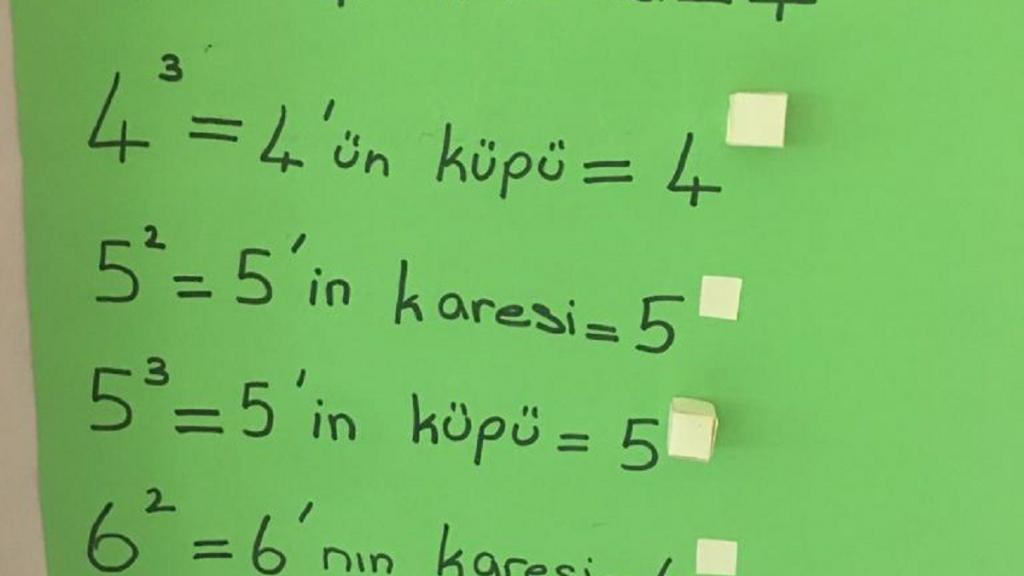 4³ = 4'ün küpü = 4
5² = 5'in karesi = 5
5³ = 5'in küpü = 5
6² = 6'nın karesi